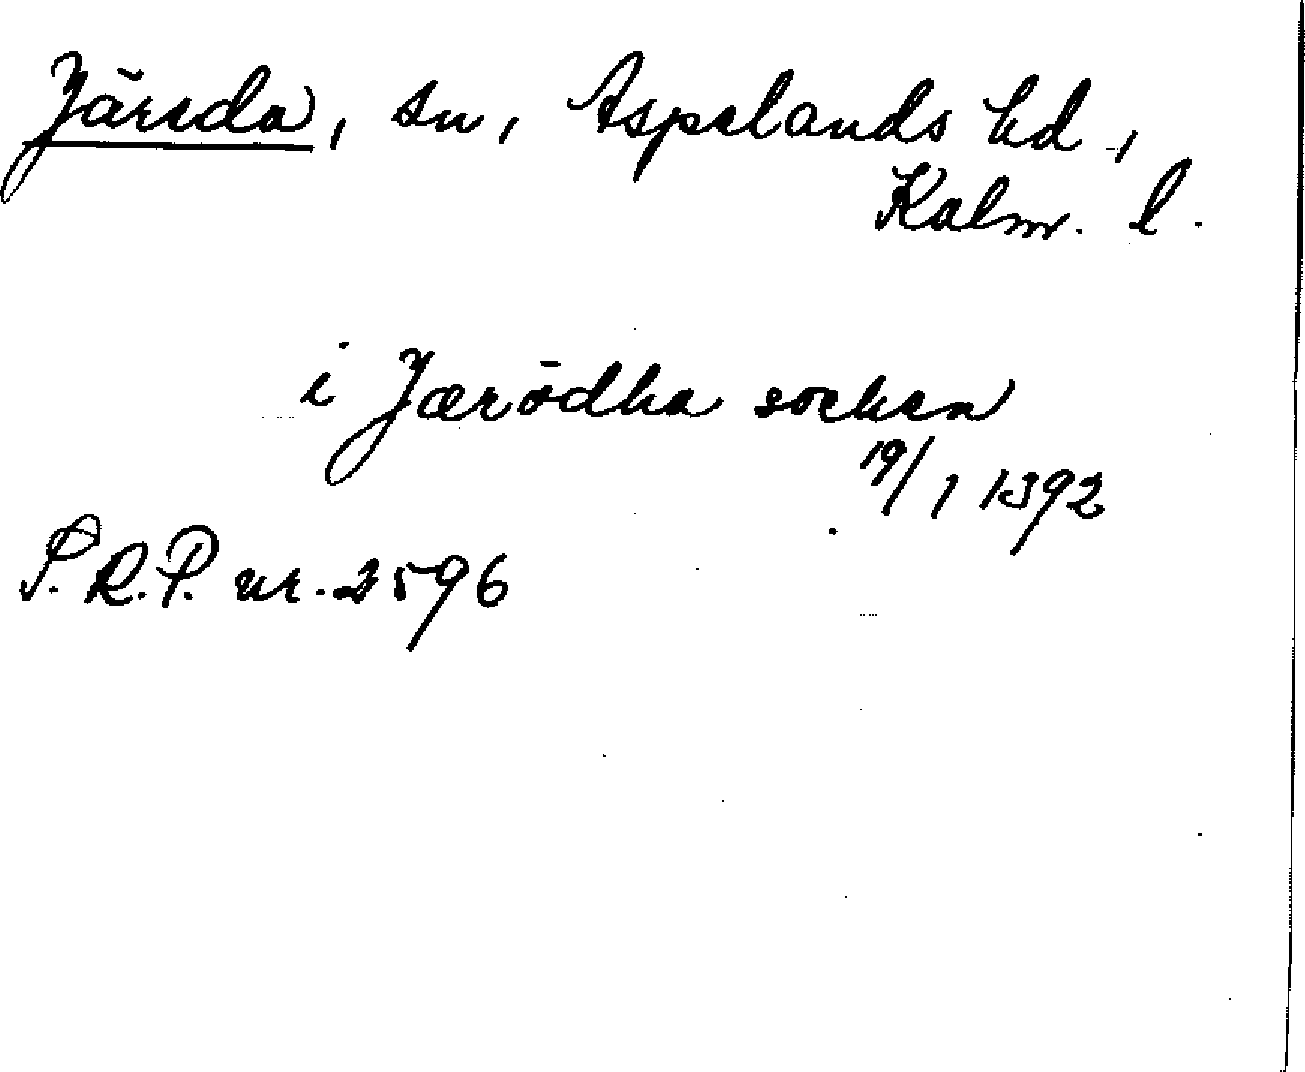 Järeda, sn, Aspelands hd.,
Kalm. l.
i Jærödha socken
19/1 1392
S.R.P. nr. 2596